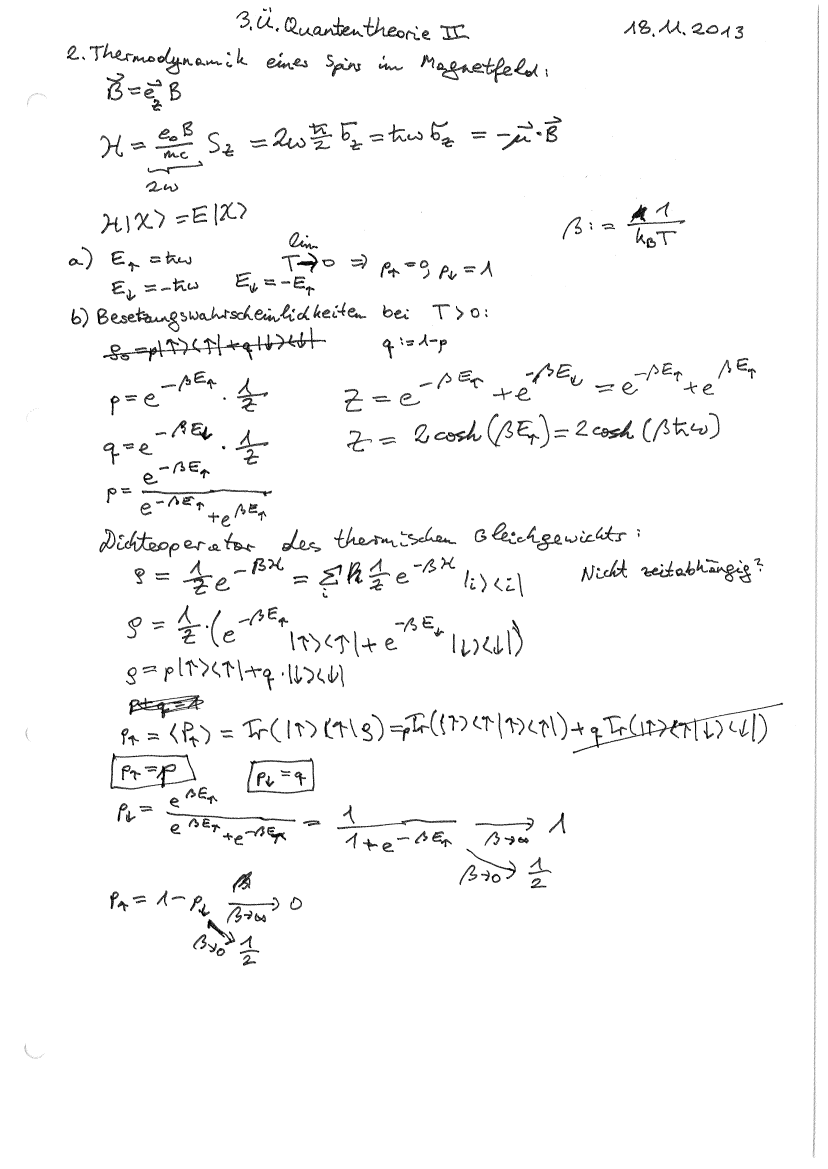 3. Ü. Quantentheorie II 18.11.2013
2. Thermodynamik eines Spins im Magnetfeld:
B⃗ = e⃗_z B
H = e₀B/mc S_z = 2ω ħ/2 σ_z = ħω σ_z = -μ⃗·B⃗
2ω
H|X⟩ = E|X⟩ β := 1/(k_B T)
a) E↑ = ħω lim T→0 ⇒ p↑ = 0, p↓ = 1
E↓ = -ħω E↓ = -E↑
b) Besetzungswahrscheinlichkeiten bei T > 0:
ρ₀ = p|↑⟩⟨↑| + q|↓⟩⟨↓| q := 1-p
p = e^(-βE↑) · 1/Z Z = e^(-βE↑) + e^(-βE↓) = e^(-βE↑) + e^(βE↑)
q = e^(-βE↓) · 1/Z Z = 2cosh(βE↑) = 2cosh(βħω)
p = e^(-βE↑) / (e^(-βE↑) + e^(βE↑))
Dichteoperator des thermischen Gleichgewichts:
ρ = 1/Z e^(-βH) = Σ_i 1/Z e^(-βH) |i⟩⟨i| Nicht zeitabhängig?
ρ = 1/Z · (e^(-βE↑) |↑⟩⟨↑| + e^(-βE↓) |↓⟩⟨↓|)
ρ = p|↑⟩⟨↑| + q·|↓⟩⟨↓|
p+q=1
p↑ = ⟨P↑⟩ = Tr(|↑⟩⟨↑|ρ) = pTr(|↑⟩⟨↑|↑⟩⟨↑|) + qTr(|↑⟩⟨↑|↓⟩⟨↓|)
p↑ = p p↓ = q
p↓ = e^(βE↑) / (e^(βE↑) + e^(-βE↑)) = 1 / (1 + e^(-βE↑)) →(β→∞) 1
β→0 1/2
p↑ = 1 - p↓ →(β→∞) 0
β→0 1/2